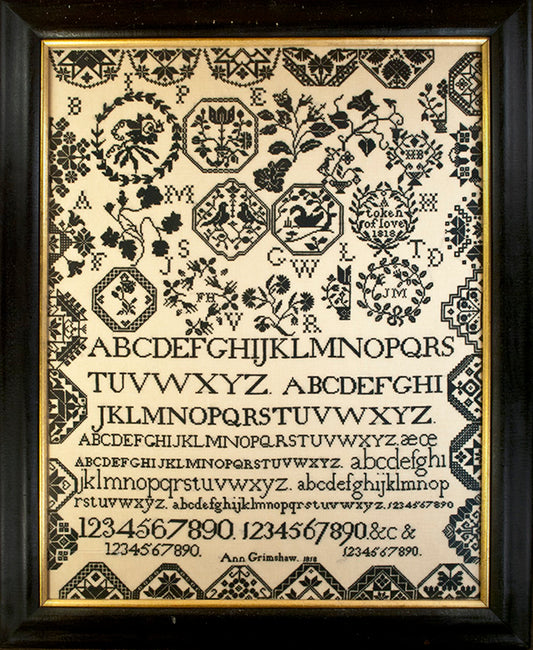 8 I P E
A M H
A
token
of love
1818
J S G W L T D
F
J M
F H
V R
ABCDEFGHIJKLMNOPQRS
TUVWXYZ. ABCDEFGHI
JKLMNOPQRSTUVWXYZ.
ABCDEFGHIJKLMNOPQRSTUVWXYZ. æœ
ABCDEFGHIJKLMNOPQRSTUVWXYZ. abcdefghi
jklmnopqrstuvwxyz. abcdefghijklmnop
rstuvwxyz. abcdefghijklmnopqrstuvwxyz. 1234567890
1234567890. 1234567890. &c &
1234567890. Ann Grimshaw. 1818 1234567890.